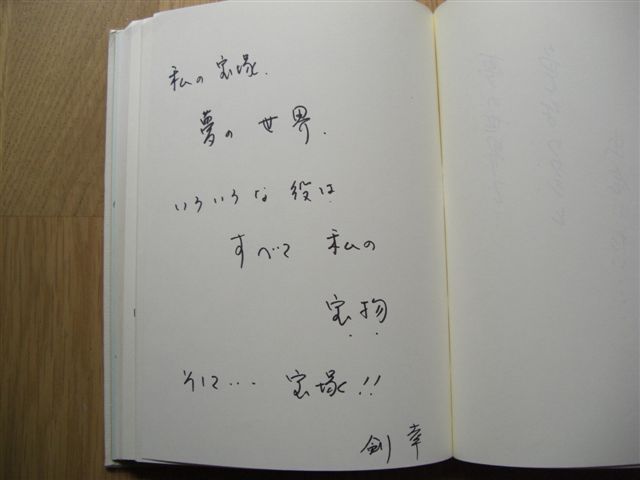 私の宝塚.
夢の世界.
いろいろな役は
すべて 私の
宝物
そして… 宝塚!!
剣 幸